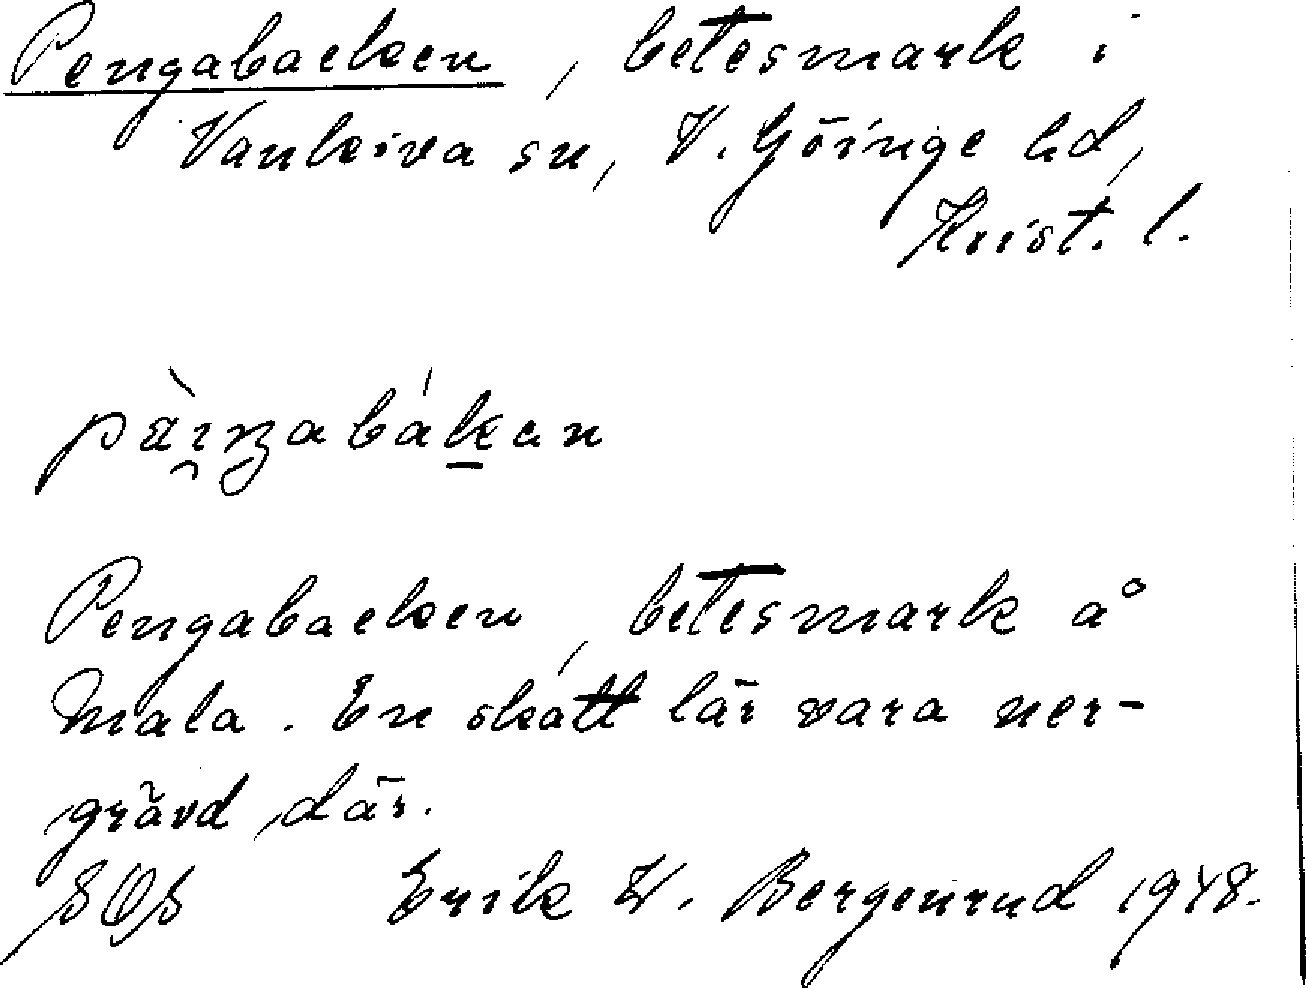 Pengabacken, betesmark i
Vankiva sn, V. Göinge hd,
Krist. l.
Pengabacken, betesmark å
Mala. En skatt lär vara ner-
grävd där.
SOS Erik W. Bergenrud 1948.